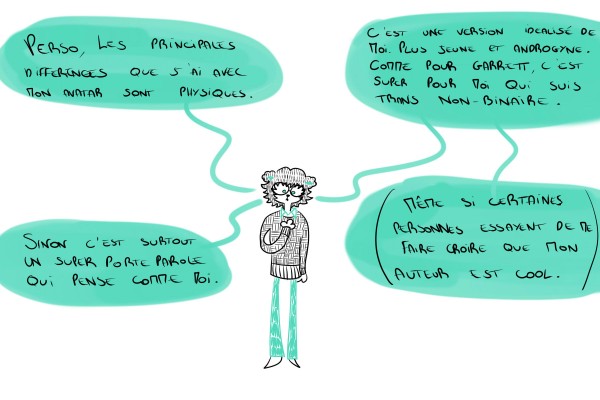 PERSO, LES PRINCIPALES
DIFFÉRENCES QUE J'AI AVEC
MON AVATAR SONT PHYSIQUES.
C'EST UNE VERSION IDEALISÉ DE
MOI. PLUS JEUNE ET ANDROGYNE.
COMME POUR GARRETT, C'EST
SUPER POUR MOI QUI SUIS
TRANS NON-BINAIRE.
(MÊME SI CERTAINES
PERSONNES ESSAYENT DE ME
FAIRE CROIRE QUE MON
AUTEUR EST COOL.)
SINON C'EST SURTOUT
UN SUPER PORTE PAROLE
QUI PENSE COMME MOI.